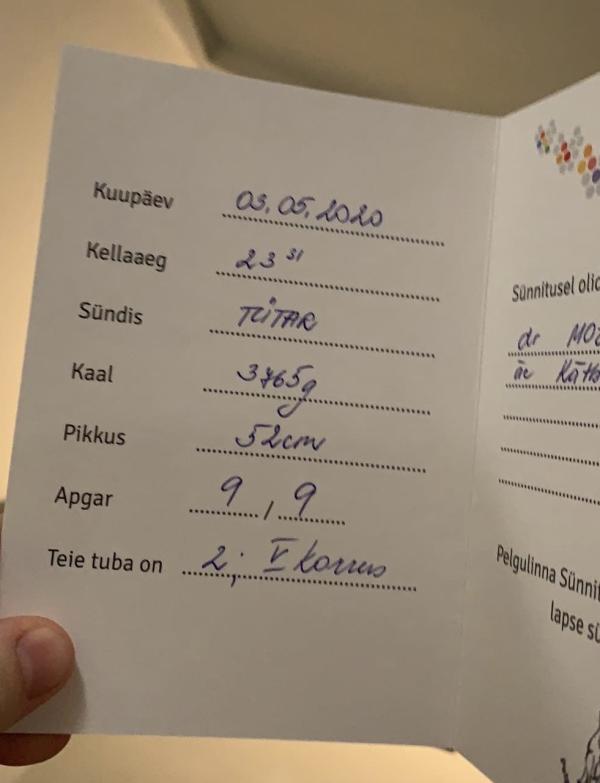 Kuupäev 03.05.2020
Kellaaeg 23 31
Sündis TÜTAR
Kaal 3765g
Pikkus 52cm
Apgar 9 / 9
Teie tuba on 2; V korrus
Sünnitusel olid
dr
äe
Pelgulinna Sünnit
lapse sü